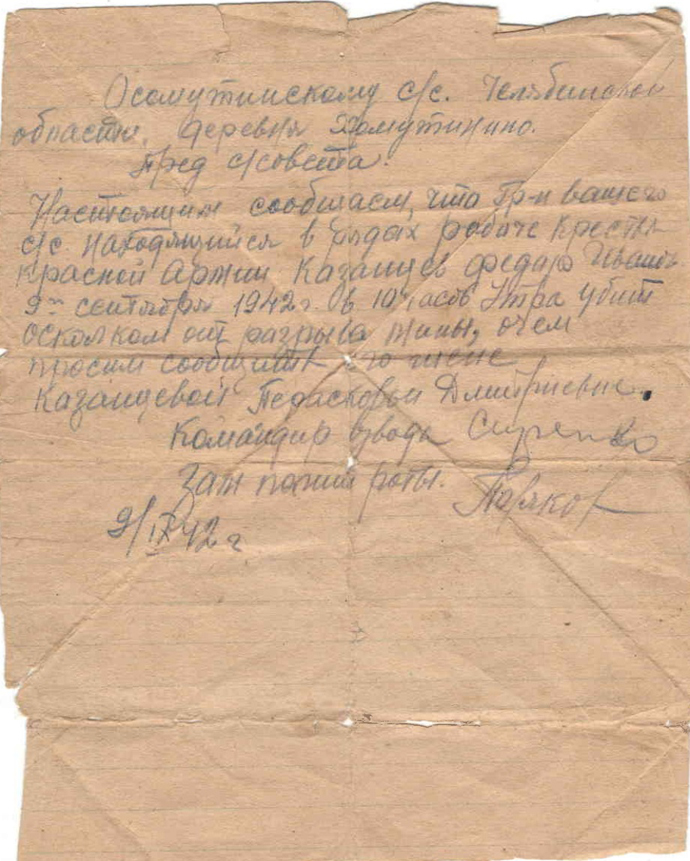 Осомутинскому с/с. Челябинской
области, деревня Хомутинино.
Пред с/совета.
Настоящим сообщаем, что Гр-н вашего
с/с. находящийся в рядах рабоче Крестья
Красной Армии Казанцев Федир Иванов
9го сентября 1942г в 10 часов Утра убит
осколком от разрыва мины, о чем
просим сообщить его жене
Казанцевой Педасковьи Дмитриевне.
Командир взвода
Зам полит роты. Поляков
9/IX 42 г